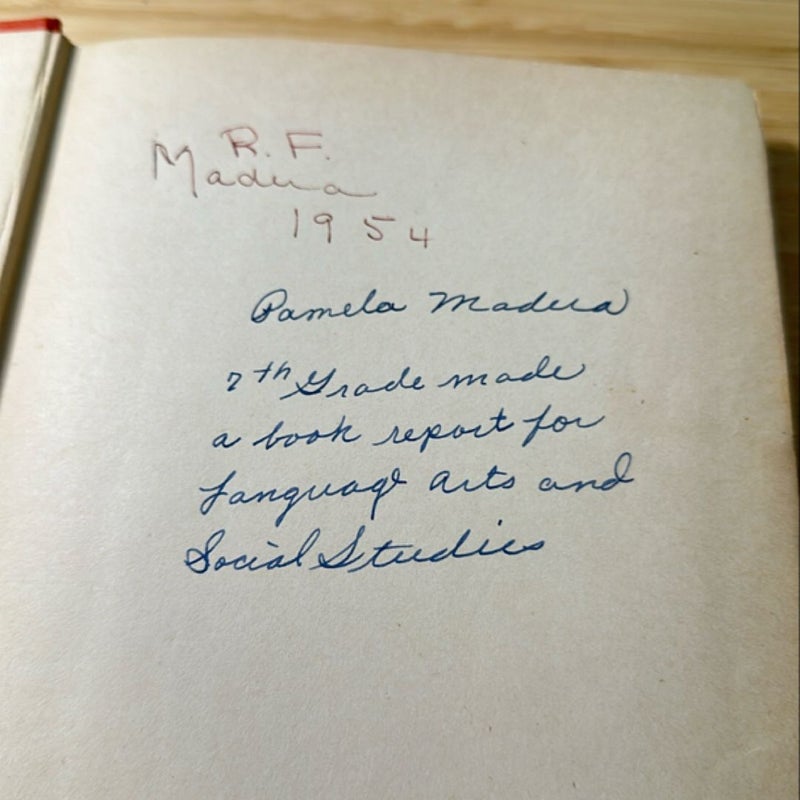 R. F.
Madera
1954
Pamela Madera
7th Grade made
a book report for
Language arts and
Social Studies